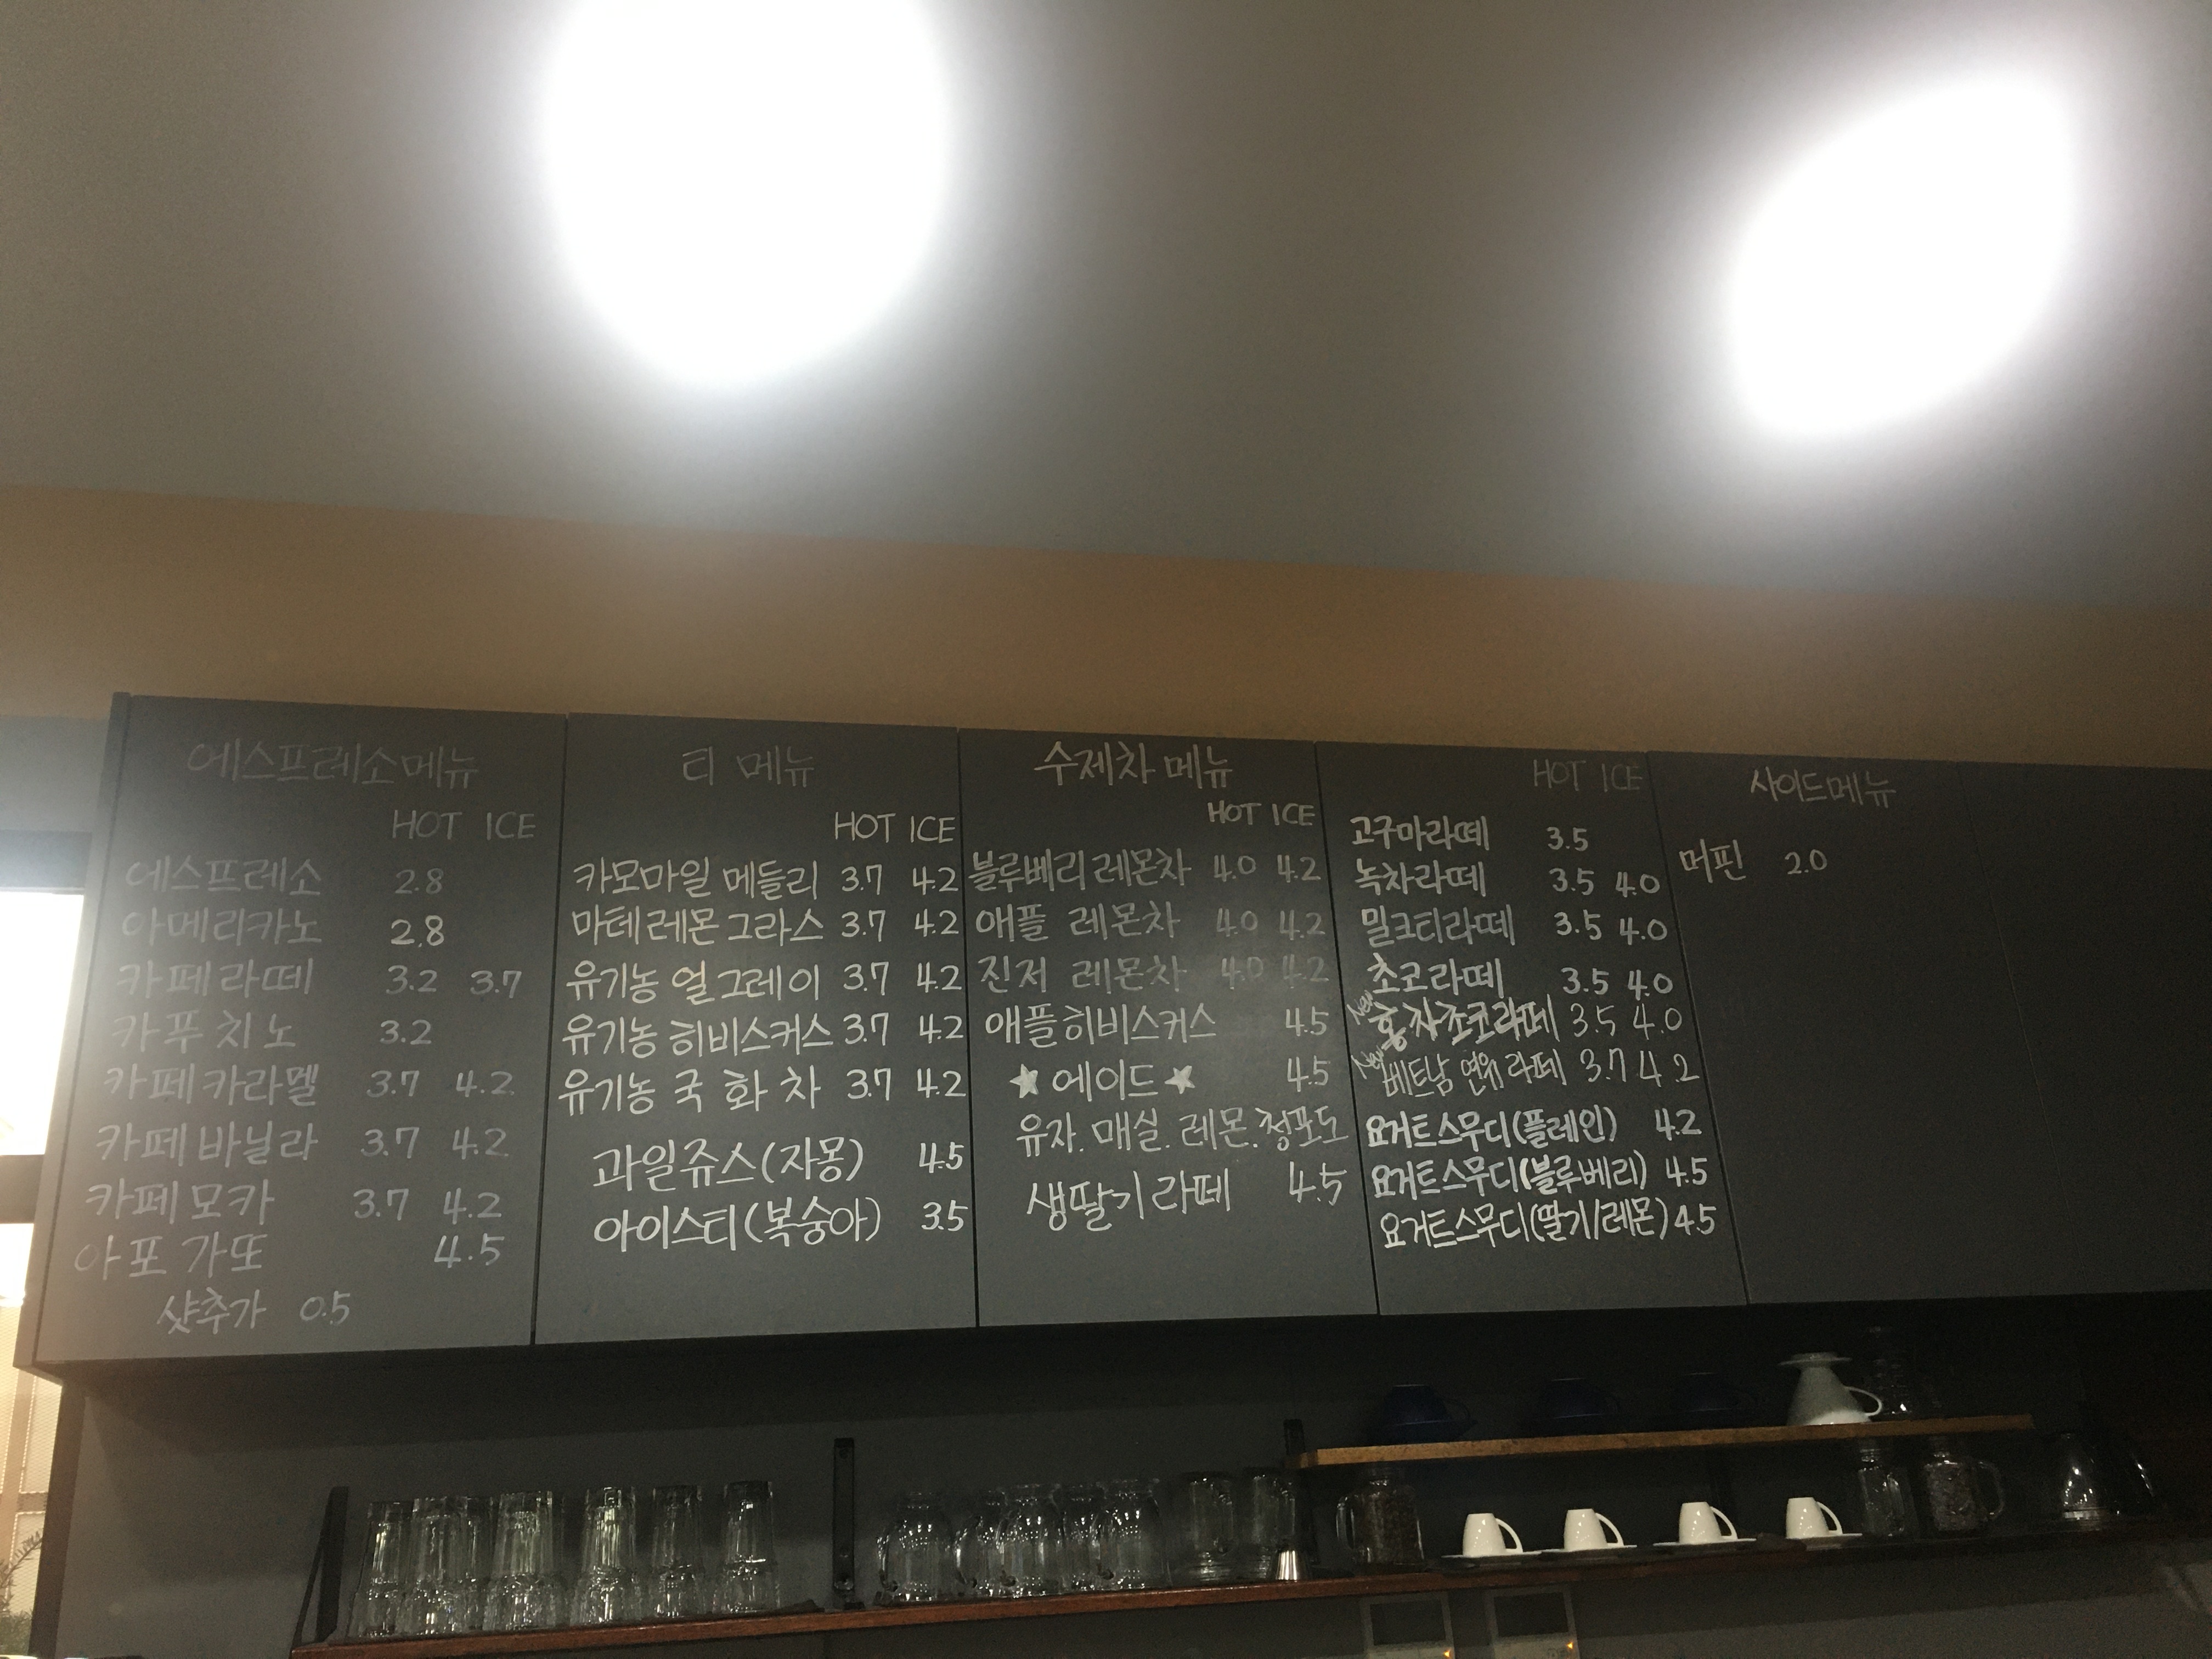 에스프레소메뉴
HOT ICE
에스프레소 2.8
아메리카노 2.8
카페라떼 3.2 3.7
카푸치노 3.2
카페카라멜 3.7 4.2
카페바닐라 3.7 4.2
카페모카 3.7 4.2
아포가또 4.5
샷추가 0.5
티 메뉴
HOT ICE
카모마일 메들리 3.7 4.2
마테레몬그라스 3.7 4.2
유기농 얼그레이 3.7 4.2
유기농 히비스커스 3.7 4.2
유기농 국화차 3.7 4.2
과일쥬스(자몽) 4.5
아이스티(복숭아) 3.5
수제차 메뉴
HOT ICE
블루베리레몬차 4.0 4.2
애플 레몬차 4.0 4.2
진저 레몬차 4.0 4.2
애플히비스커스 4.5
★에이드★ 4.5
유자. 매실. 레몬. 청포도
생딸기라떼 4.5
HOT ICE
고구마라떼 3.5
녹차라떼 3.5 4.0
밀크티라떼 3.5 4.0
초코라떼 3.5 4.0
New 홍차초코라떼 3.5 4.0
New 베트남 연유 라떼 3.7 4.2
요거트스무디(플레인) 4.2
요거트스무디(블루베리) 4.5
요거트스무디(딸기/레몬) 4.5
사이드메뉴
머핀 2.0